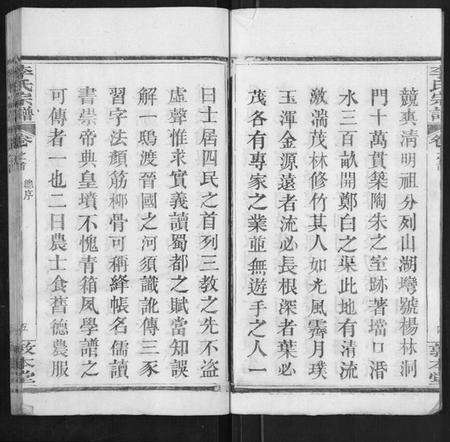 李氏宗譜
競爽清明祖分列山湖灣號楊林洞
門十萬貫築陶朱之室跡著壋口湒
水三百畝開鄭白之渠此地有清流
激湍茂林修竹其人如光風霽月璞
玉渾金源遠者流必長根深者葉必
茂各有專家之業並無遊手之人一
曰士居四民之首列三教之先不盜
虛聲惟求實義讀蜀都之賦當知誤
解一鴟渡晉國之河須識訛傳三豕
習字法顏筋柳骨可稱絳帳名儒讀
書崇帝典皇墳不愧青箱夙學譜之
可傳者一也二曰農士食舊德農服
李氏宗譜
卷首
總序
敦本堂